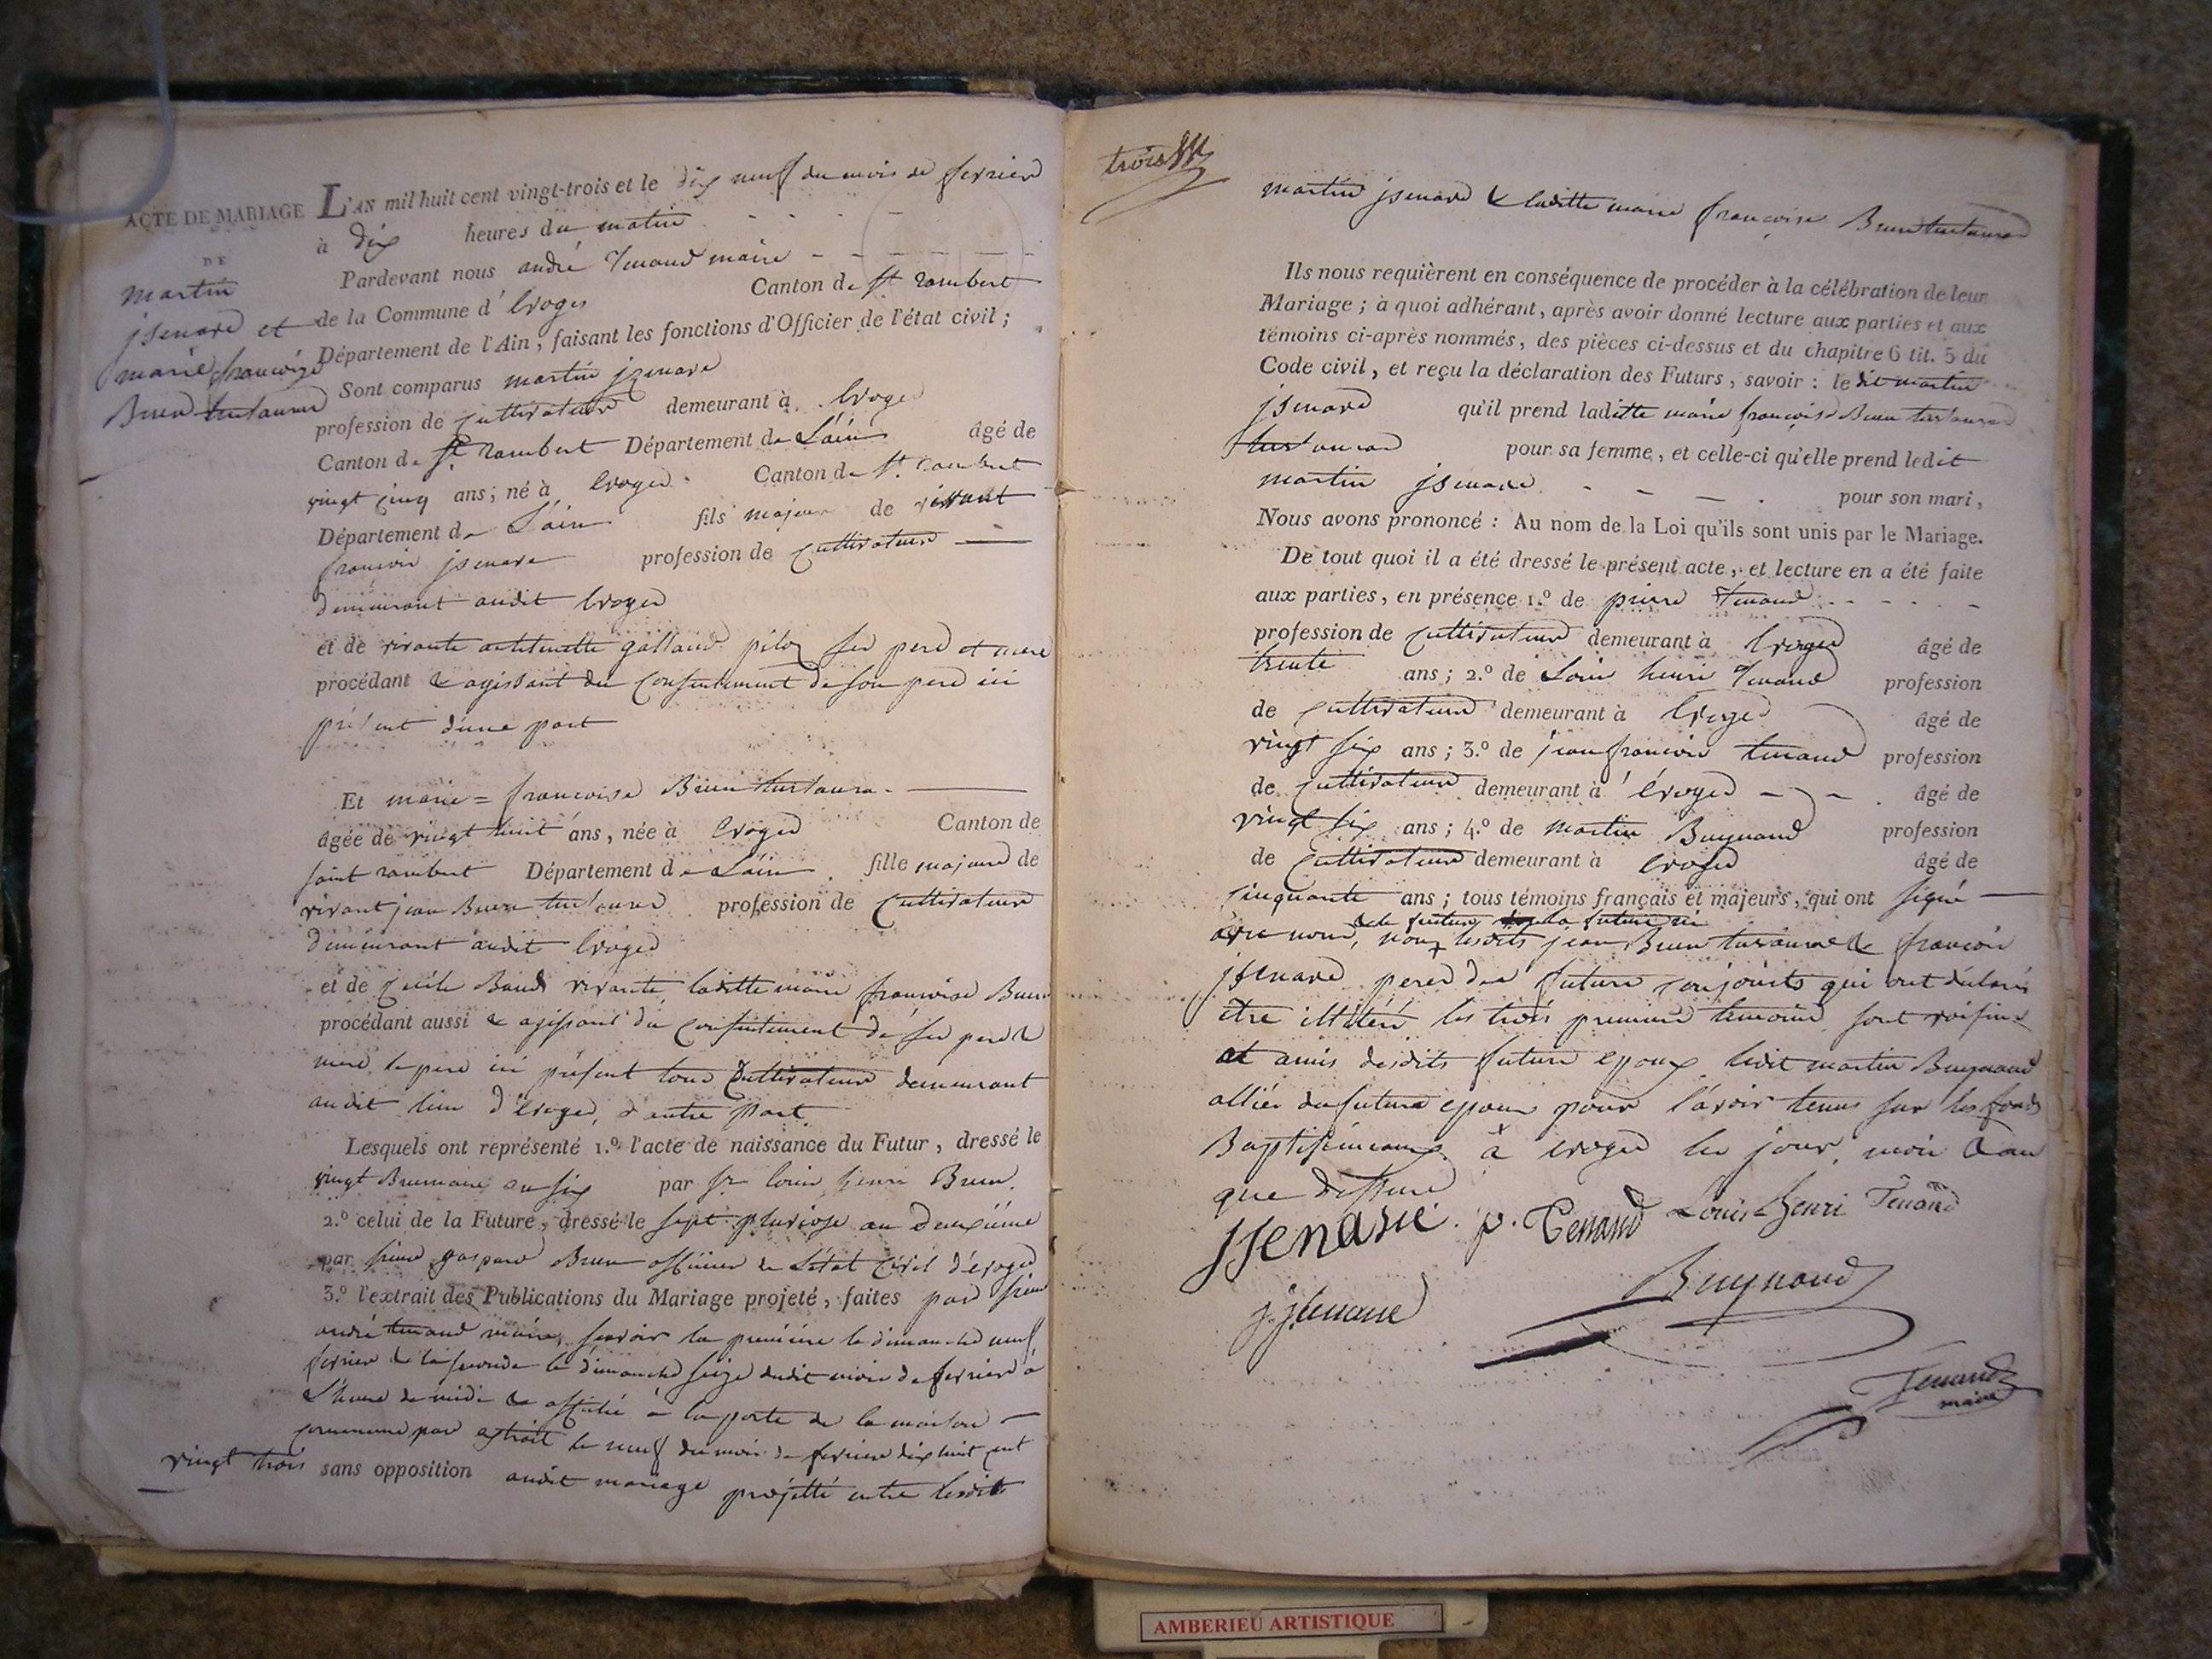 ACTE DE MARIAGE
DE
martin
jsenard et
marie françoise
Brun tustaurer
L'AN mil huit cent vingt-trois et le dix neuf du mois de fevrier
à dix heures du matin
Pardevant nous andré Tenand maire
de la Commune d'Evoges Canton de St rambert
Département de l'Ain, faisant les fonctions d'Officier de l'état civil;
Sont comparus martin jzenard
profession de Cultivateur demeurant à Evoges
Canton de St rambert Département de L'ain âgé de
vingt cinq ans; né à Evoges Canton de St rambert
Département de L'ain fils majeur de vivant
françois jsenard profession de Cultivateur
demeurant audit Evoges
et de vivante antoinette galland piloz ses pere et mere
procédant & agissant du Consentement de son pere ici
présent d'une part
Et marie = françoise Brun
âgée de vingt huit ans, née à Evoges Canton de
saint rambert Département de L'ain fille majeure de
vivant jean Brun profession de Cultivateur
demeurant audit Evoges
et de Cécile Baud vivante, laditte marie françoise Brun
procédant aussi & agissant du Consentement de ses pere &
mere, le pere ici présent tous Cultivateurs demeurant
audit lieu d'évoges, d'autre part
Lesquels ont représenté 1.º l'acte de naissance du Futur, dressé le
vingt Brumaire an six par sr louis henri Brun
2.º celui de la Future, dressé le sept pluviose an Deuxième
par sieur gaspard Brun officier de L'état Civil d'évoges
3.º l'extrait des Publications du Mariage projeté, faites par sieur
andré tenand maire, savoir la première le dimanche neuf
fevrier & la seconde le dimanche seize dudit mois de fevrier à
L'heure de midi & affiché à la porte de la maison
commune par extrait le neuf du mois de fevrier dix huit cent
vingt trois sans opposition audit mariage projetté entre lesdits
trois
martin jsenard & laditte marie françoise Brun
Ils nous requièrent en conséquence de procéder à la célébration de leur
Mariage; à quoi adhérant, après avoir donné lecture aux parties et aux
témoins ci-après nommés, des pièces ci-dessus et du chapitre 6 tit. 5 du
Code civil, et reçu la déclaration des Futurs, savoir: le dit martin
jsenard qu'il prend laditte marie françoise Brun
pour sa femme, et celle-ci qu'elle prend ledit
martin jsenard pour son mari,
Nous avons prononcé: Au nom de la Loi qu'ils sont unis par le Mariage.
De tout quoi il a été dressé le présent acte, et lecture en a été faite
aux parties, en présence 1.º de pierre Tenand
profession de Cultivateur demeurant à Evoges âgé de
trente ans; 2.º de Louis henri Tenand profession
de Cultivateur demeurant à Evoges âgé de
vingt six ans; 3.º de jean françois tenand profession
de Cultivateur demeurant à évoges âgé de
vingt six ans; 4.º de martin Buynand profession
de Cultivateur demeurant à Evoges âgé de
Cinquante ans; tous témoins français et majeurs, qui ont signé
avec nous, non lesdits jean Brun & françois
jsenard peres des futurs conjoints qui ont déclaré
être illitéré les trois premiers temoins sont voisins
et amis desdits futurs epoux ledit martin Buynand
allié du futur epoux pour l'avoir tenus sur les fonds
Baptiseimaux à evoges les jour, mois & an
que dessus
JSENARd. p. Tenand Louis henri Tenand
j. f. tenand
Buynand
Tenand
maire
AMBERIEU ARTISTIQUE